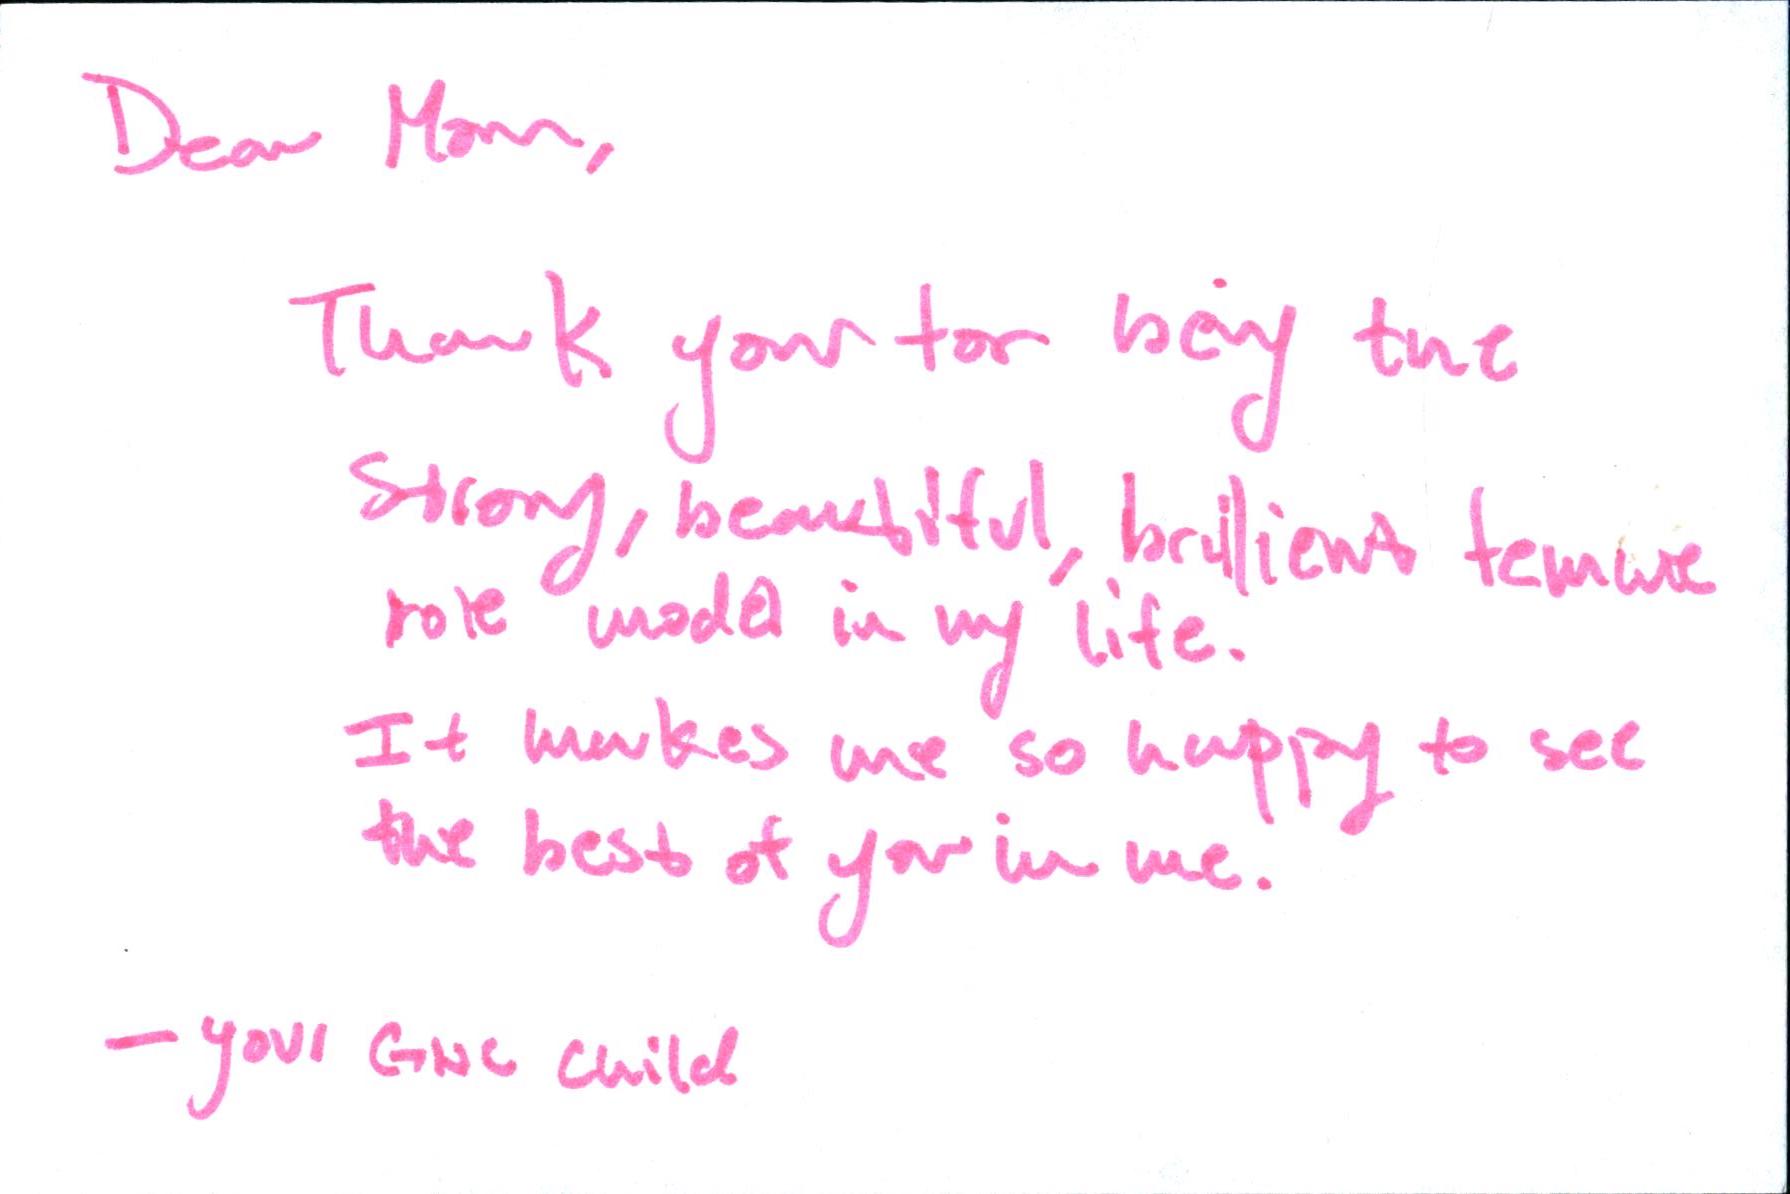 Dear Mom,
Thank you for being the
strong, beautiful, brillient femme
role model in my life.
It makes me so happy to see
the best of you in me.
- your GNC child